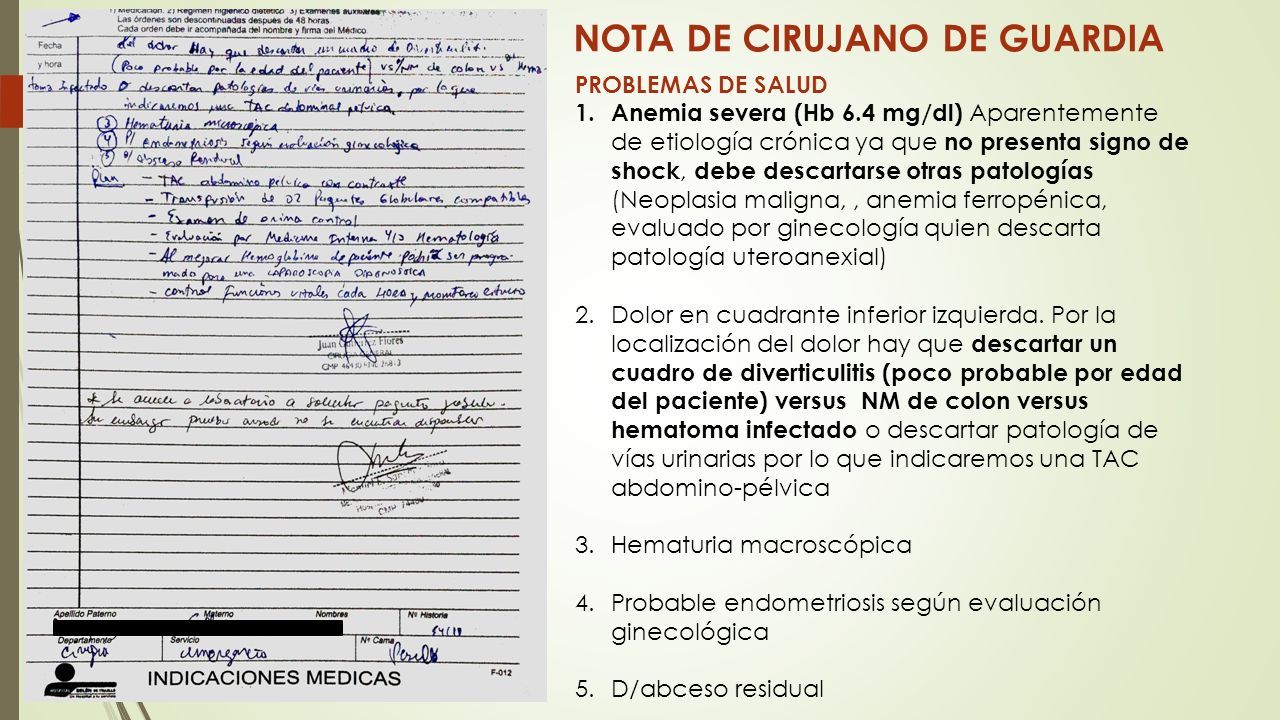 1) Medicación. 2) Régimen higiénico dietético 3) Exámenes auxiliares
Las órdenes son descontinuadas después de 48 horas.
Cada orden debe ir acompañada del nombre y firma del Médico.
Fecha
y hora
del dolor Hay que descartar un cuadro de
(Poco probable por la edad del paciente) vs NM de colon vs Hema
toma Infectado o descartar patologías de vías urinarias, por lo que
indicaremos una TAC abdominal pélvica.
(3) Hematuria microscópica
(4) P/ endometriosis según evaluación ginecológica
(5) D/ abseso Residual
Plan
- TAC abdomino pelvica con contraste
- Transfusión de 02 Paquetes Globulares compatibles
- Examen de orina control
- Evaluación por Medicina Interna y/o Hematología
- Al mejorar Hemoglobina de paciente podría ser progra-
mado para una LAPAROSCOPIA DIAGNOSTICA
- control funciones vitales cada hora y monitoreo estricto
Juan Flores
CIRUGIA GENERAL
CMP
* Se acude a laboratorio a solicitar paquete
Sin embargo no se encuentra disponible
CMP
Apellido Paterno Materno Nombres Nº Historia
Departamento Servicio Nº Cama
Cirugía Emergencia
INDICACIONES MEDICAS
F-012
BELÉN DE TRUJILLO
NOTA DE CIRUJANO DE GUARDIA
PROBLEMAS DE SALUD
1. Anemia severa (Hb 6.4 mg/dl) Aparentemente
de etiología crónica ya que no presenta signo de
shock, debe descartarse otras patologías
(Neoplasia maligna, , anemia ferropénica,
evaluado por ginecología quien descarta
patología uteroanexial)
2. Dolor en cuadrante inferior izquierda. Por la
localización del dolor hay que descartar un
cuadro de diverticulitis (poco probable por edad
del paciente) versus NM de colon versus
hematoma infectado o descartar patología de
vías urinarias por lo que indicaremos una TAC
abdomino-pélvica
3. Hematuria macroscópica
4. Probable endometriosis según evaluación
ginecológica
5. D/abceso residual